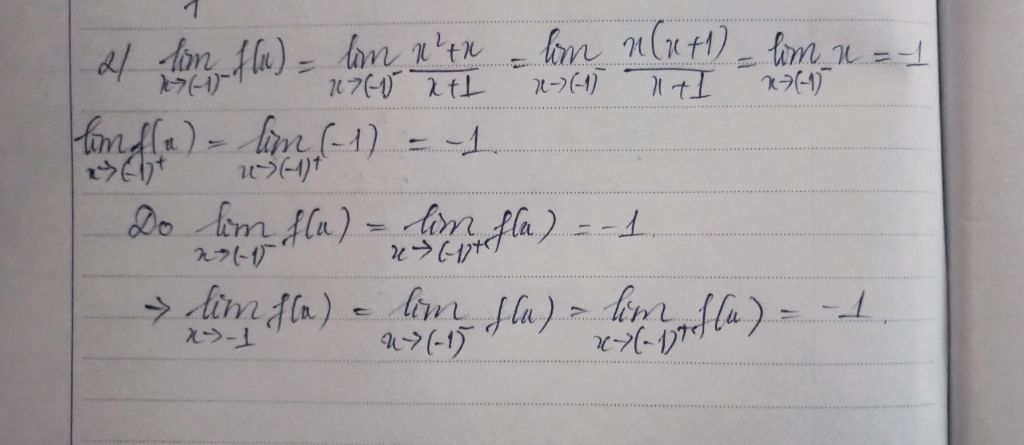 2/ lim_{x→(-1)⁻} f(x) = lim_{x→(-1)⁻} (x²+x)/(x+1) = lim_{x→(-1)⁻} x(x+1)/(x+1) = lim_{x→(-1)⁻} x = -1
lim_{x→(-1)⁺} f(x) = lim_{x→(-1)⁺} (-1) = -1
Do lim_{x→(-1)⁻} f(x) = lim_{x→(-1)⁺} f(x) = -1.
→ lim_{x→-1} f(x) = lim_{x→(-1)⁻} f(x) = lim_{x→(-1)⁺} f(x) = -1.